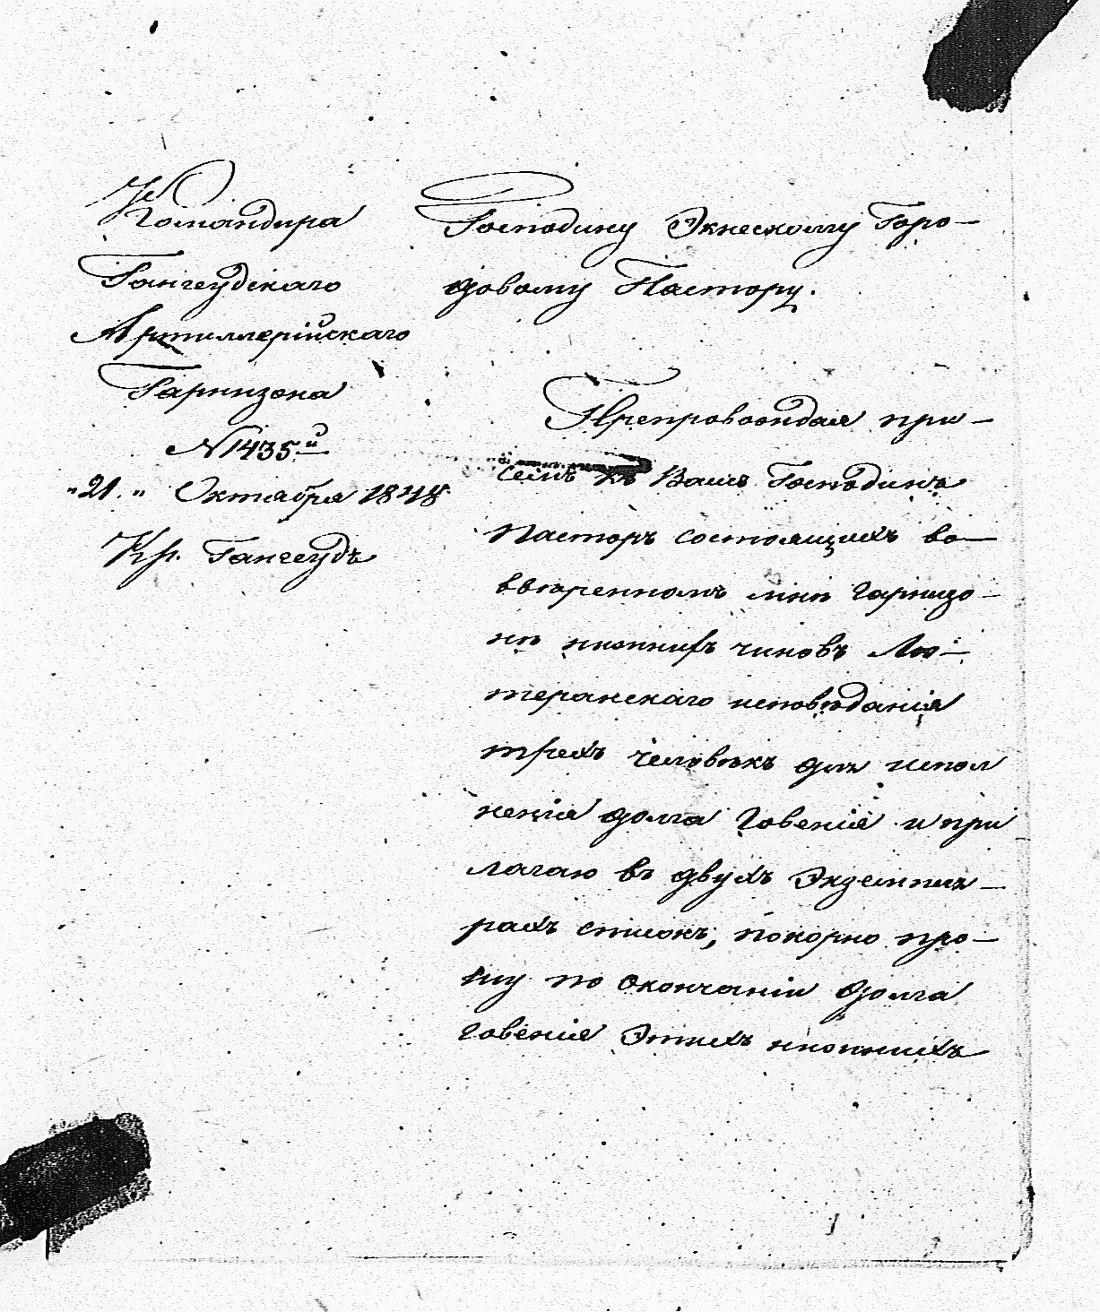 Командира
Гангеудскаго
Артиллерійскаго
Гарнизона
N 1435й
"21." Октября 1848
Кр. Гангеудъ
Господину Экнескому Горо-
довому Пастору.
Препровождая при-
семъ къ Вамъ Господинъ
Пасторъ состоящихъ во
ввѣренномъ мнѣ гарнизо-
нѣ нижнихъ чиновъ Лю-
теранскаго исповѣданія
трехъ человѣкъ для испол
ненія долга говенія и при
лагаю въ двухъ Экземпля-
рахъ списокъ, покорно про-
шу по окончаніи долга
говенія Этихъ нижнихъ